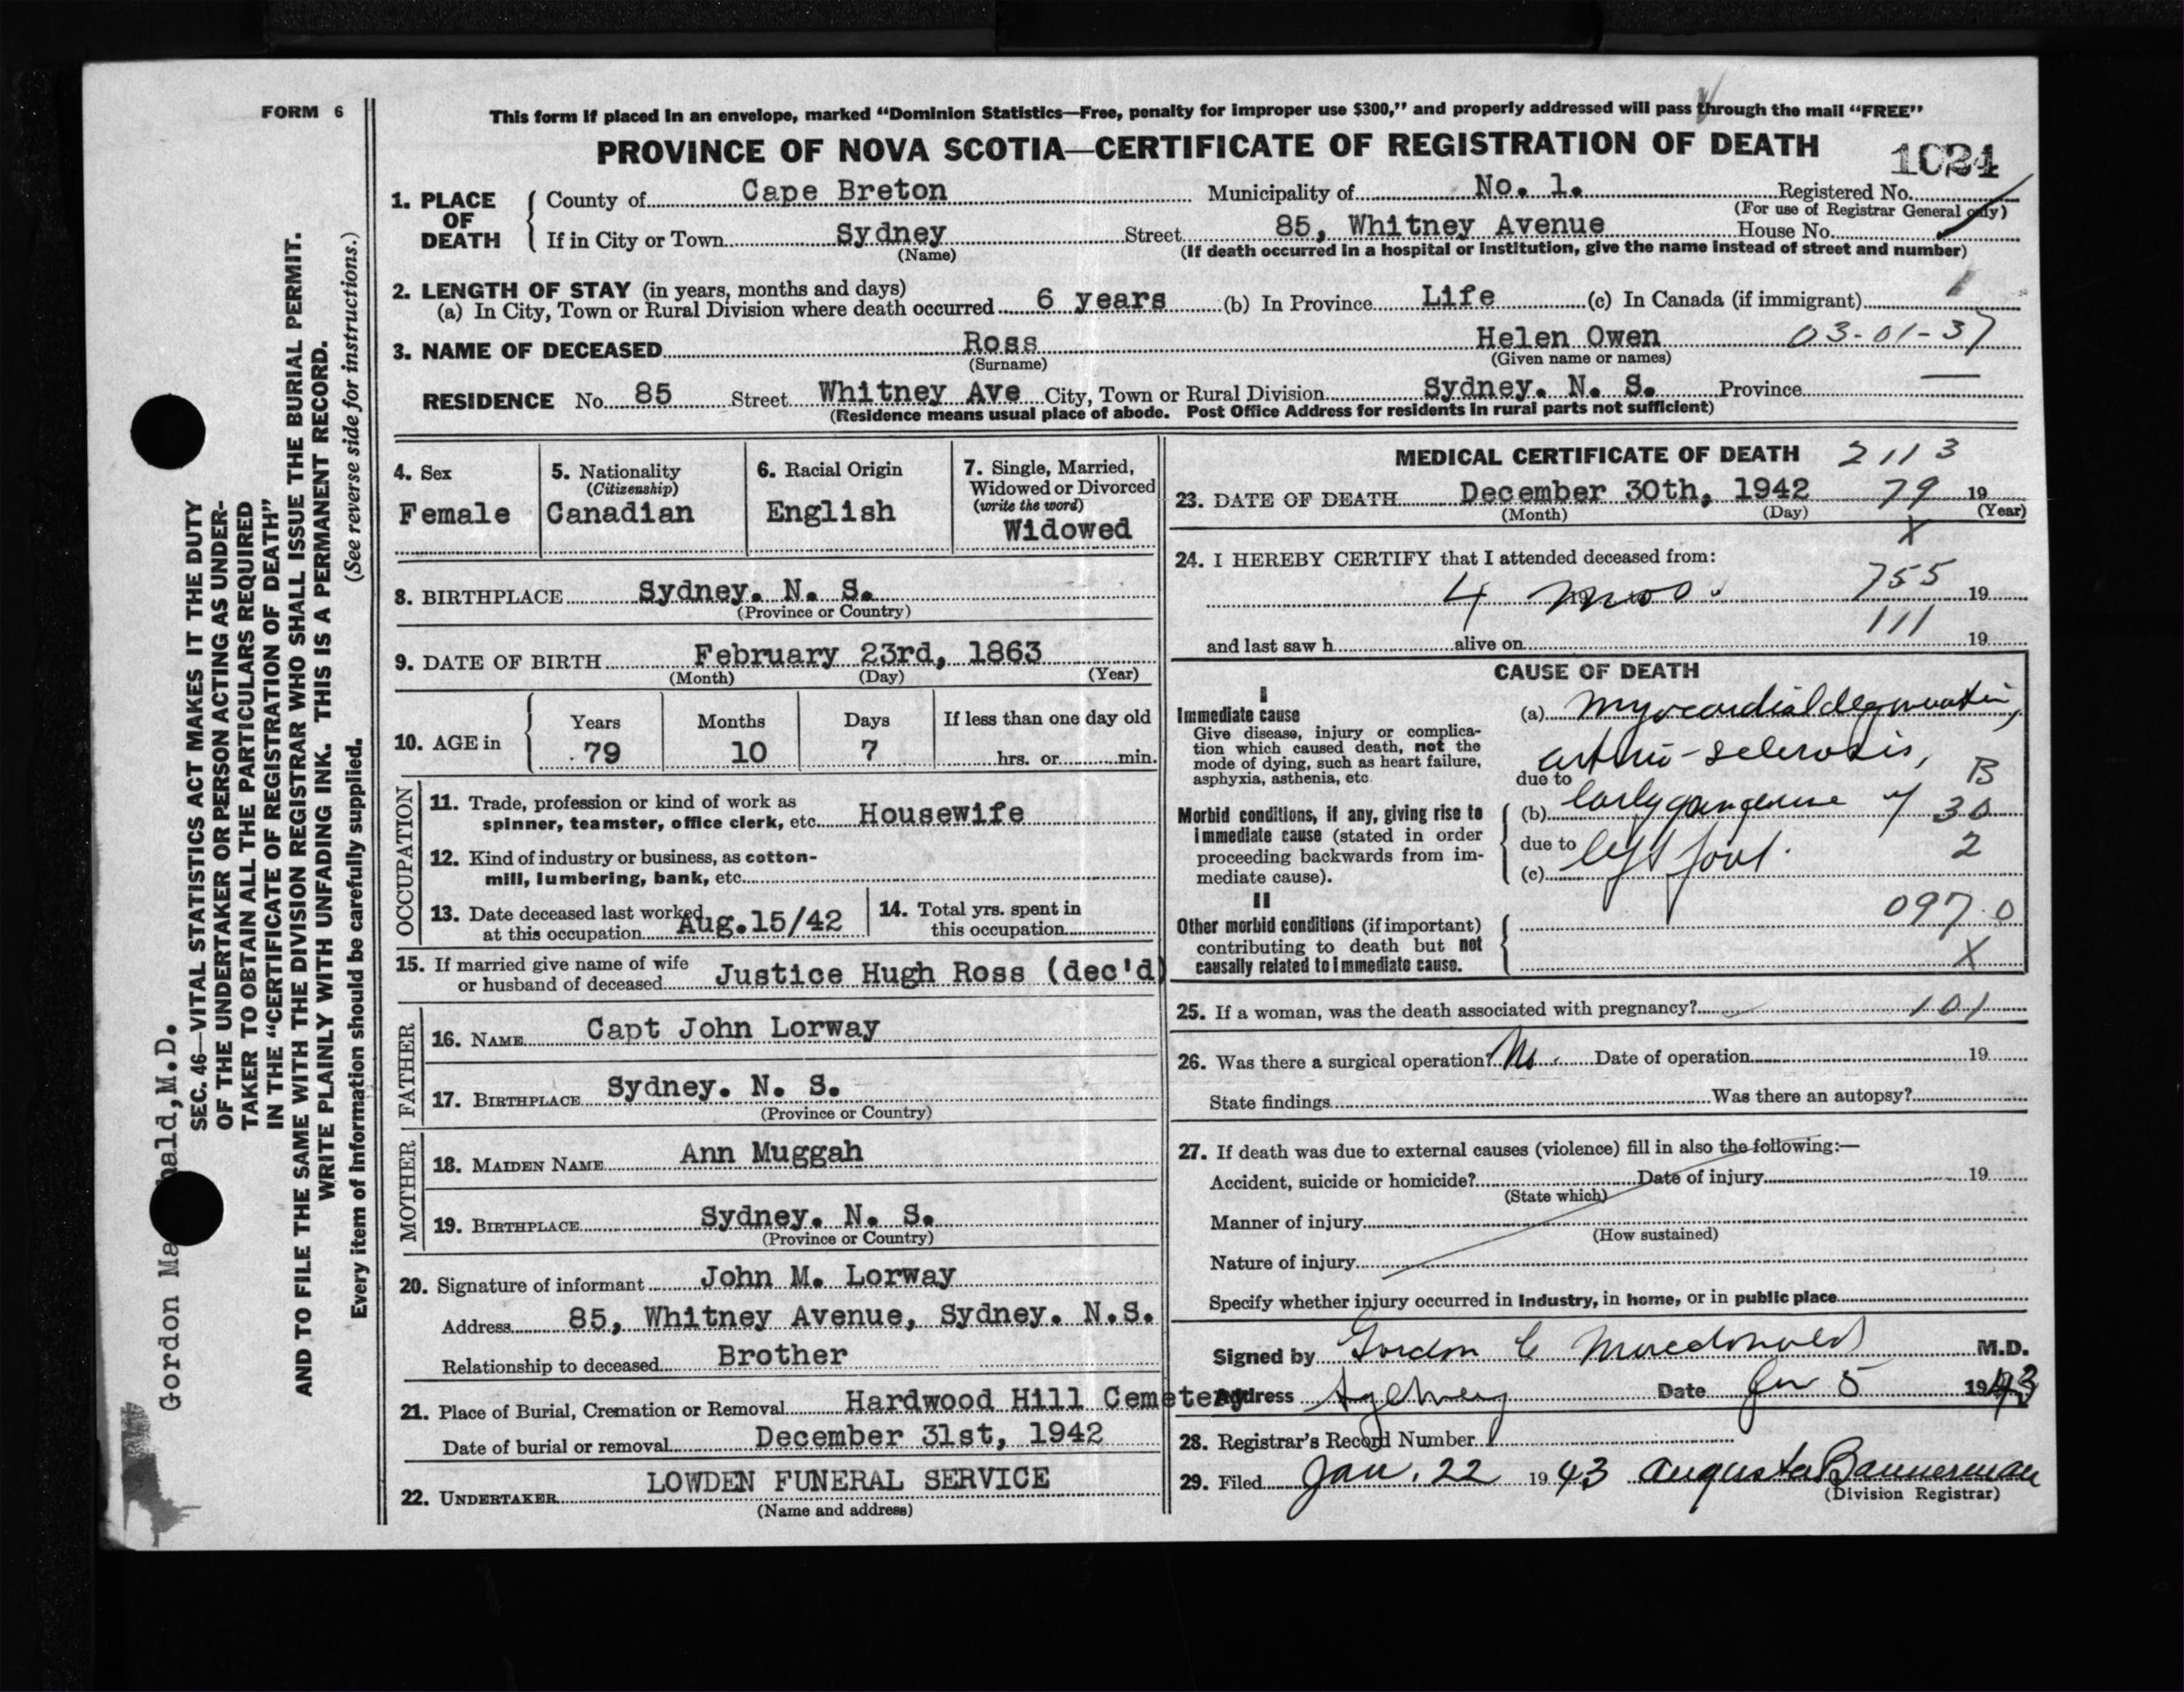 FORM 6
This form if placed in an envelope, marked “Dominion Statistics—Free, penalty for improper use $300,” and properly addressed will pass through the mail “FREE”
PROVINCE OF NOVA SCOTIA—CERTIFICATE OF REGISTRATION OF DEATH
1. PLACE OF DEATH
County of Cape Breton Municipality of No. 1. Registered No.
(For use of Registrar General only)
If in City or Town Sydney Street 85, Whitney Avenue House No.
(Name) (If death occurred in a hospital or institution, give the name instead of street and number)
2. LENGTH OF STAY (in years, months and days)
(a) In City, Town or Rural Division where death occurred 6 years (b) In Province Life (c) In Canada (if immigrant)
3. NAME OF DECEASED Ross Helen Owen 03-01-37
(Surname) (Given name or names)
RESIDENCE No. 85 Street Whitney Ave City, Town or Rural Division Sydney. N. S. Province
(Residence means usual place of abode. Post Office Address for residents in rural parts not sufficient)
4. Sex
Female
5. Nationality
(Citizenship)
Canadian
6. Racial Origin
English
7. Single, Married,
Widowed or Divorced
(write the word)
Widowed
8. BIRTHPLACE Sydney. N. S.
(Province or Country)
9. DATE OF BIRTH February 23rd, 1863
(Month) (Day) (Year)
10. AGE in
Years Months Days If less than one day old
79 10 7 hrs. or min.
OCCUPATION
11. Trade, profession or kind of work as
spinner, teamster, office clerk, etc. Housewife
12. Kind of industry or business, as cotton-
mill, lumbering, bank, etc.
13. Date deceased last worked
at this occupation Aug.15/42
14. Total yrs. spent in
this occupation
15. If married give name of wife
or husband of deceased Justice Hugh Ross (dec'd)
FATHER
16. NAME Capt John Lorway
17. BIRTHPLACE Sydney. N. S.
(Province or Country)
MOTHER
18. MAIDEN NAME Ann Muggah
19. BIRTHPLACE Sydney. N. S.
(Province or Country)
20. Signature of informant John M. Lorway
Address 85, Whitney Avenue, Sydney. N.S.
Relationship to deceased Brother
21. Place of Burial, Cremation or Removal Hardwood Hill Cemetery
Date of burial or removal December 31st, 1942
22. UNDERTAKER LOWDEN FUNERAL SERVICE
(Name and address)
MEDICAL CERTIFICATE OF DEATH 2113
23. DATE OF DEATH December 30th, 1942 79 19
(Month) (Day) (Year)
X
24. I HEREBY CERTIFY that I attended deceased from:
4 mos. 755 19
111
and last saw h alive on 19
CAUSE OF DEATH
I
Immediate cause
Give disease, injury or complica-
tion which caused death, not the
mode of dying, such as heart failure,
asphyxia, asthenia, etc.
(a) Myocardial degeneration,
arterio-sclerosis,
due to B
Morbid conditions, if any, giving rise to
immediate cause (stated in order
proceeding backwards from im-
mediate cause).
(b) early gangrene of 30
due to left foot. 2
(c)
II
Other morbid conditions (if important)
contributing to death but not
causally related to immediate cause.
097.0
X
25. If a woman, was the death associated with pregnancy? 101
26. Was there a surgical operation? No. Date of operation 19
State findings Was there an autopsy?
27. If death was due to external causes (violence) fill in also the following:—
Accident, suicide or homicide? Date of injury 19
(State which)
Manner of injury
(How sustained)
Nature of injury
Specify whether injury occurred in industry, in home, or in public place
Signed by Gordon C Macdonald M.D.
Address Sydney Date Jan 5 1943
28. Registrar's Record Number
29. Filed Jan. 22 1943 Augusta Bannerman
(Division Registrar)
SEC. 46—VITAL STATISTICS ACT MAKES IT THE DUTY
OF THE UNDERTAKER OR PERSON ACTING AS UNDER-
TAKER TO OBTAIN ALL THE PARTICULARS REQUIRED
IN THE “CERTIFICATE OF REGISTRATION OF DEATH”
AND TO FILE THE SAME WITH THE DIVISION REGISTRAR WHO SHALL ISSUE THE BURIAL PERMIT.
WRITE PLAINLY WITH UNFADING INK. THIS IS A PERMANENT RECORD.
(See reverse side for instructions.)
Every item of information should be carefully supplied.
Gordon Ma nald,M.D.